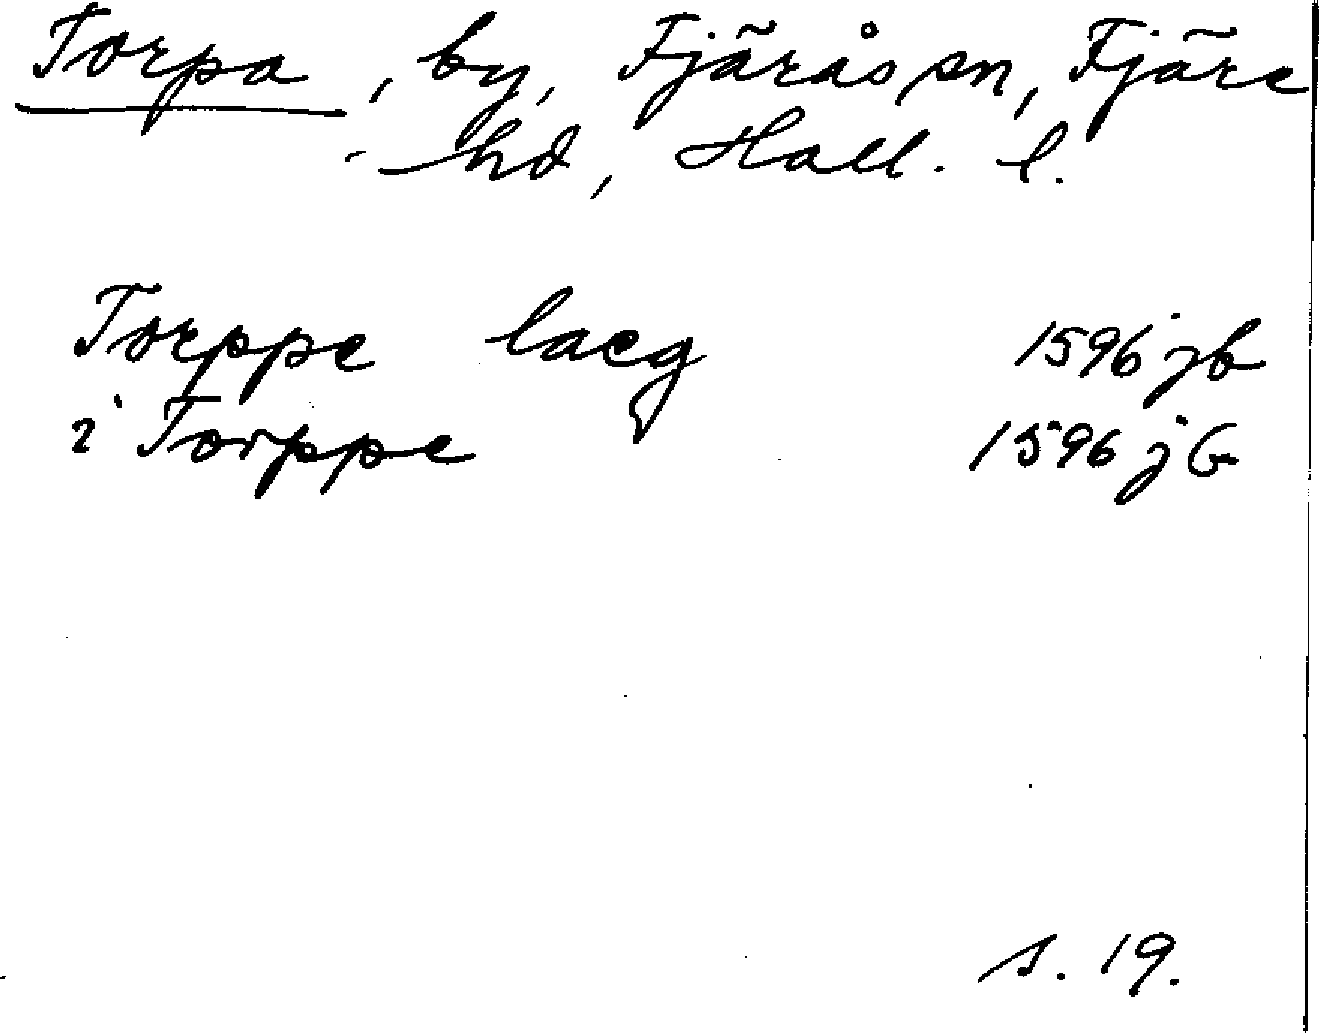 Torpa, by, Fjärås sn, Fjäre
hd, Hall. l.
Torppe laeg 1596 jb
i Torppe 1596 jb
s. 19.